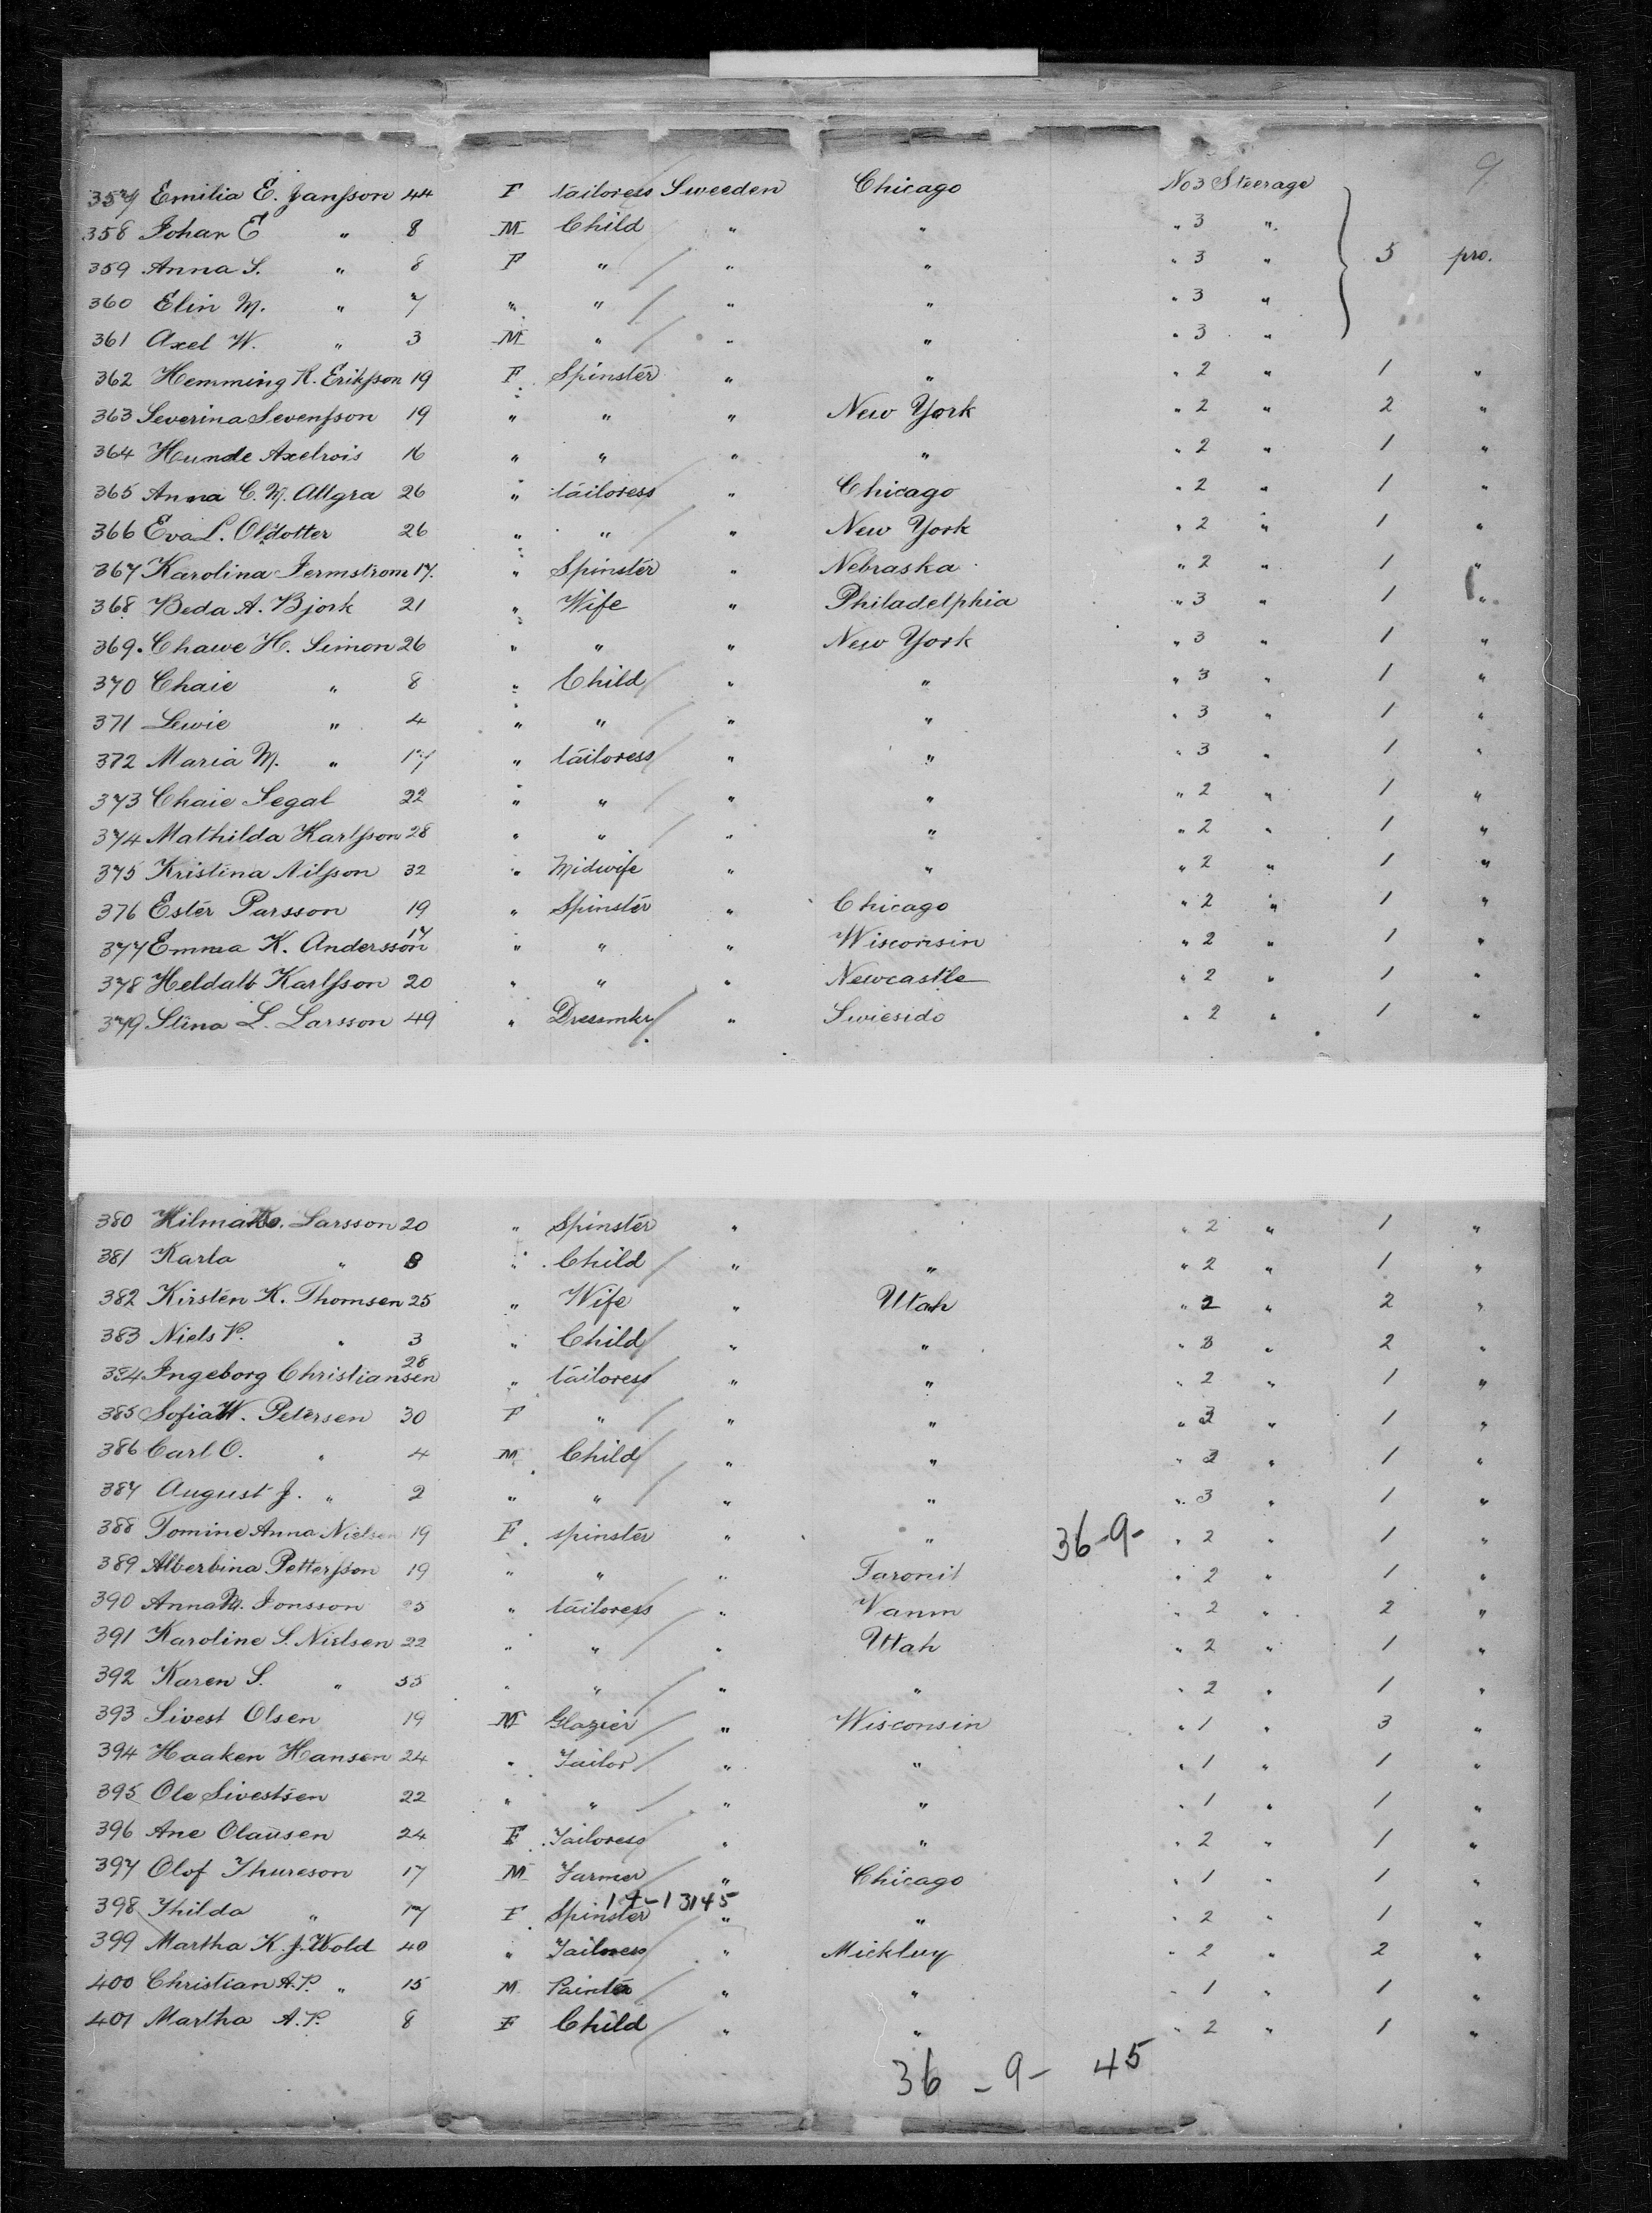 9
357 Emilia E. Jansson 44 F tailoress Sweeden Chicago No 3 Steerage
358 Johan E " 8 M Child " " " 3 "
359 Anna S. " 8 F " " " " 3 " 5 pro.
360 Elin M. " 7 " " " " " 3 "
361 Axel W. " 3 M " " " " 3 "
362 Hemming K. Eriksson 19 F Spinster " " " 2 " 1 "
363 Severina Sevensson 19 " " " New York " 2 " 2 "
364 Hunde Axelrois 16 " " " " " 2 " 1 "
365 Anna C. M. Allgra 26 " tailoress " Chicago " 2 " 1 "
366 Eva L. Olsdotter 26 " " " New York " 2 " 1 "
367 Karolina Jermstrom 17. " Spinster " Nebraska " 2 " 1 "
368 Beda A. Bjork 21 " Wife " Philadelphia " 3 " 1 "
369. Chawe H. Simon 26 " " " New York " 3 " 1 "
370 Chaie " 8 " Child " " " 3 " 1 "
371 Lewie " 4 " " " " " 3 " 1 "
372 Maria M. " 17 " tailoress " " " 3 " 1 "
373 Chaie Segal 22 " " " " " 2 " 1 "
374 Mathilda Karlsson 28 " " " " " 2 " 1 "
375 Kristina Nilsson 32 " Midwife " " " 2 " 1 "
376 Ester Parsson 19 " Spinster " Chicago " 2 " 1 "
377 Emma K. Andersson 17 " " " Wisconsin " 2 " 1 "
378 Heldalt Karlsson 20 " " " Newcastle " 2 " 1 "
379 Stina L. Larsson 49 " Dressmkr " Swiesido " 2 " 1 "
380 Hilma Larsson 20 " Spinster " " 2 " 1 "
381 Karla " 8 " Child " " " 2 " 1 "
382 Kirsten K. Thomsen 25 " Wife " Utah " 2 " 2 "
383 Niels P. " 3 " Child " " " 3 " 2 "
384 Ingeborg Christiansen 28 " tailoress " " " 2 " 1 "
385 Sofia W. Petersen 30 F " " " " 3 " 1 "
386 Carl O. " 4 M Child " " " 3 " 1 "
387 August J. " 2 " " " " " 3 " 1 "
388 Tomine Anna Nielsen 19 F spinster " " 36-9- " 2 " 1 "
389 Alberbina Pettersson 19 " " " Faronit " 2 " 1 "
390 Anna M. Jonsson 25 " tailoress " Vanm " 2 " 2 "
391 Karoline S. Nielsen 22 " " " Utah " 2 " 1 "
392 Karen S. " 55 " " " " " 2 " 1 "
393 Sivest Olsen 19 M Glazier " Wisconsin " 1 " 3 "
394 Haaken Hansen 24 " Tailor " " " 1 " 1 "
395 Ole Sivestsen 22 " " " " " 1 " 1 "
396 Ane Olausen 24 F Tailoress " " " 2 " 1 "
397 Olof Thureson 17 M Farmer " Chicago " 1 " 1 "
14-13145
398 Thilda " 17 F Spinster " " " 2 " 1 "
399 Martha K. J. Wold 40 " Tailoress " Mickluy " 2 " 2 "
400 Christian A. P. " 15 M Painter " " " 1 " 1 "
401 Martha A. P. 8 F Child " " " 2 " 1 "
36 - 9 - 45